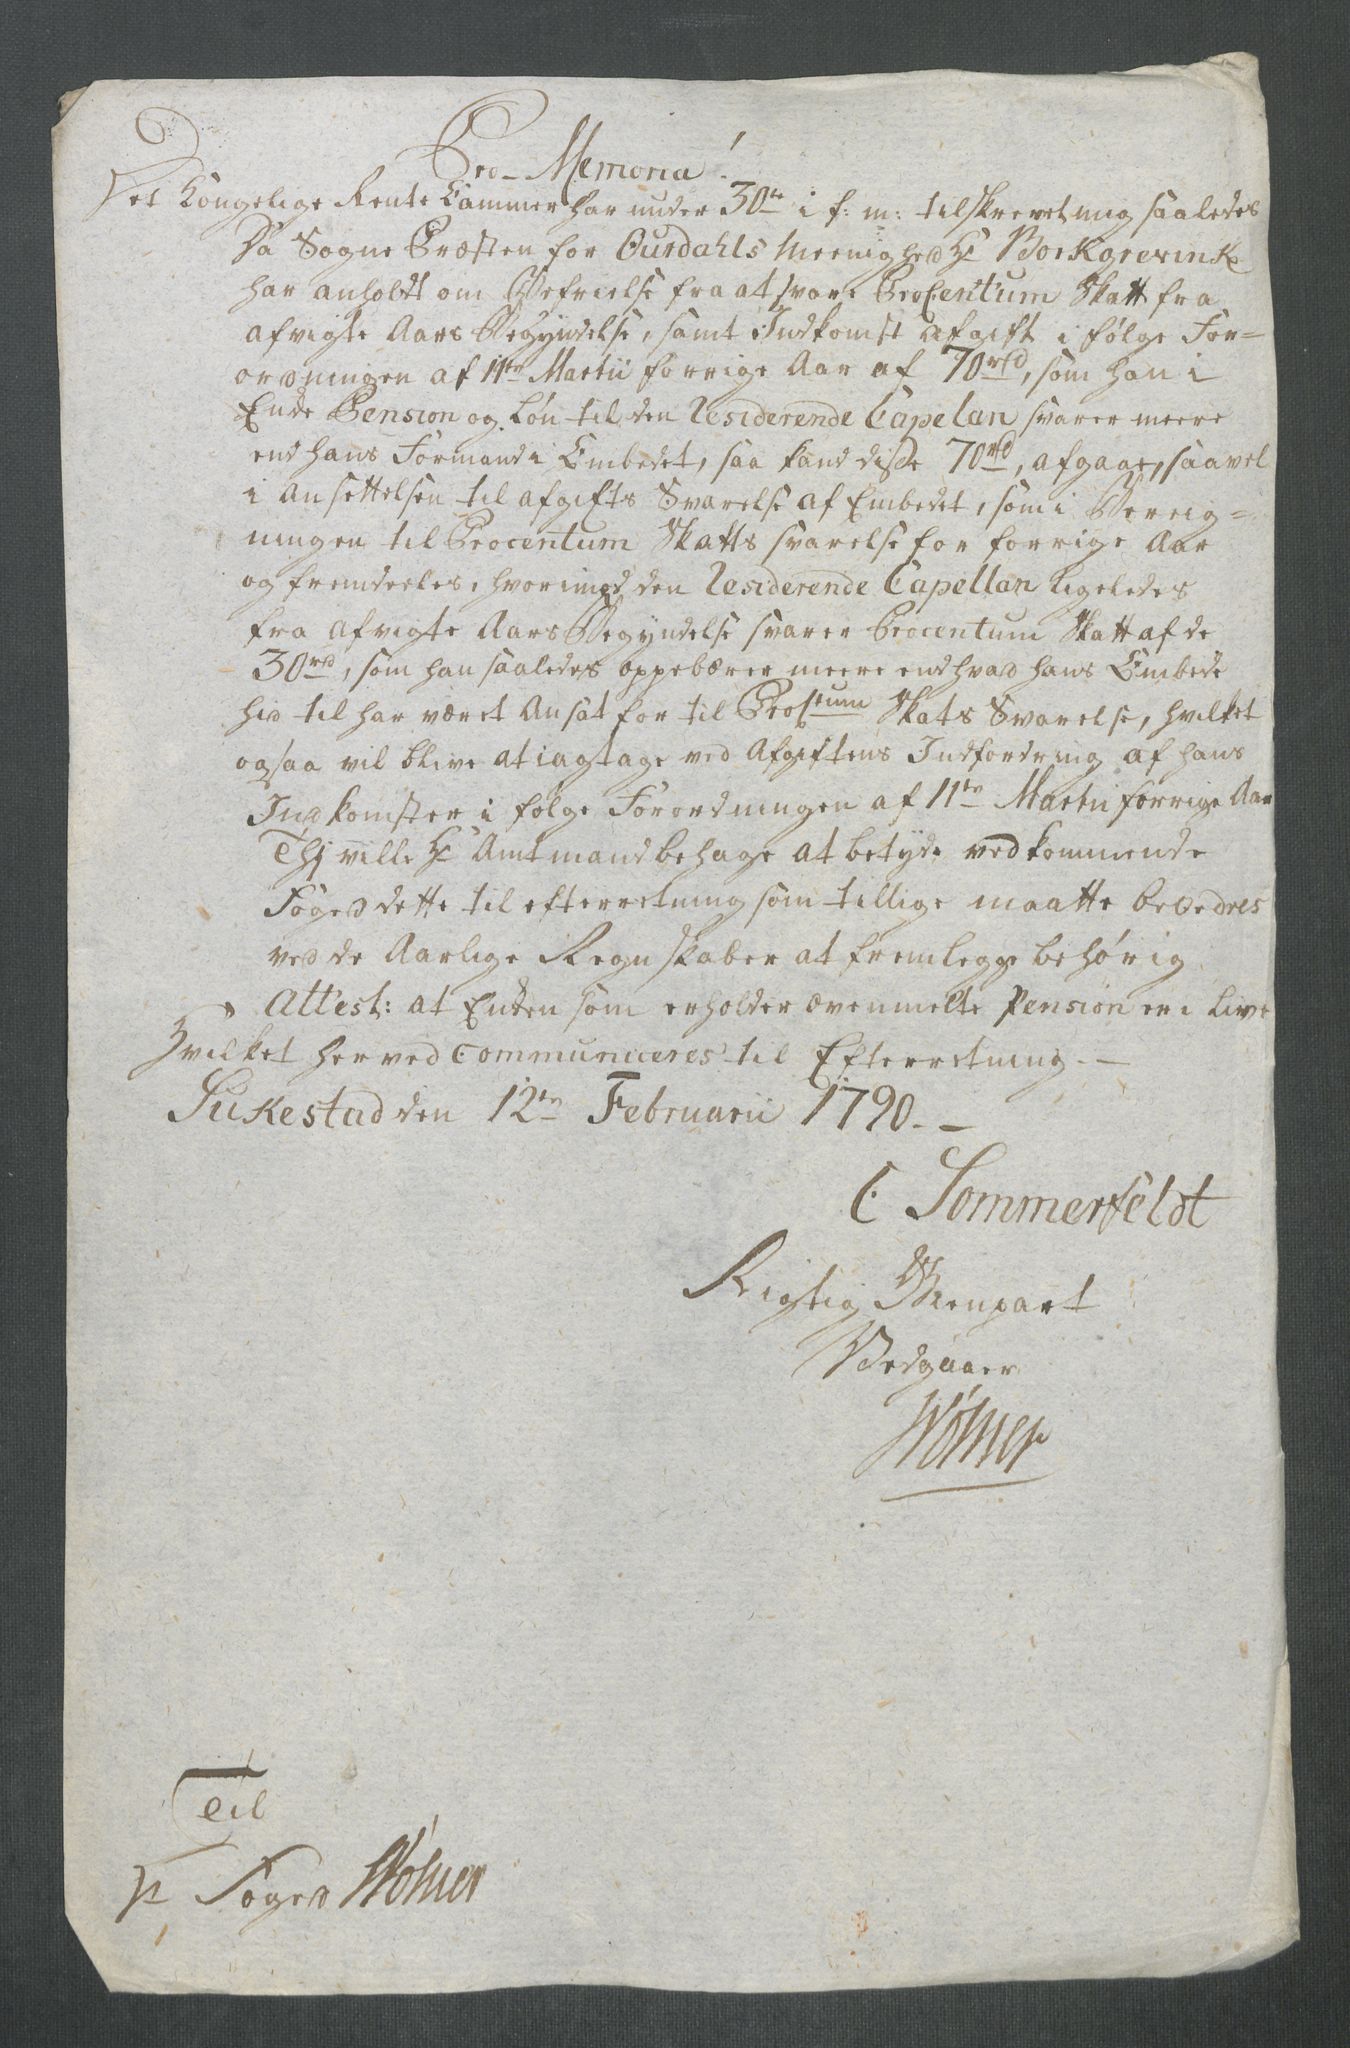 Pro-Memoria!
Det Kongelige Rente Cammer har under 30te i f: m: tilskrevet mig saaledes
Da Sogne Præsten for Ourdahls Meenighed Hr Borkgrevink
har anholdt om Befrielse fra at svare Procentum Skatt fra
afvigte Aars Begyndelse, samt Indkomst Afgift i følge For-
ordningen af 11te Martii forrige Aar af 70rd, som han i
Enke Pension og Løn til den Residerende Capelan svarer meere
end hans Formand i Embedet, saa kand disse 70rd, afgaae, saavel
i Ansettelsen til afgifts Svarelse af Embedet, som i Bereig-
ningen til Procentum Skatts svarelse for forrige Aar
og fremdeeles, hvorimod den Residerende Capellan ligeledes
fra afvigte Aars Begyndelse svarer Procentum Skatt af de
30rd, som han saaledes oppebærer meere end hvad hans Embede
hid til har været Ansat for til Procentum Skats Svarelse, hvilket
ogsaa vil blive at iagtage ved Afgiftens Indfordring af hans
Indkomster i følge Forordningen af 11te Martii forrige Aar
Thj ville Hr Amtmand behage at betyde vedkommende
Foged dette til efterretning som tillige maatte beordres
ved de Aarlige Regnskaber at fremlegge behørig
Attest: at Enken som erholder ovenmelte Pension er i Live
Hvilket herved Communiceres til Efterretning.
Sukestad den 12te Februarii 1790.
C Sommerfeldt
Rigtig Gienpart
Vedgaaer
Wølner
Til
Hr Foged Wølner